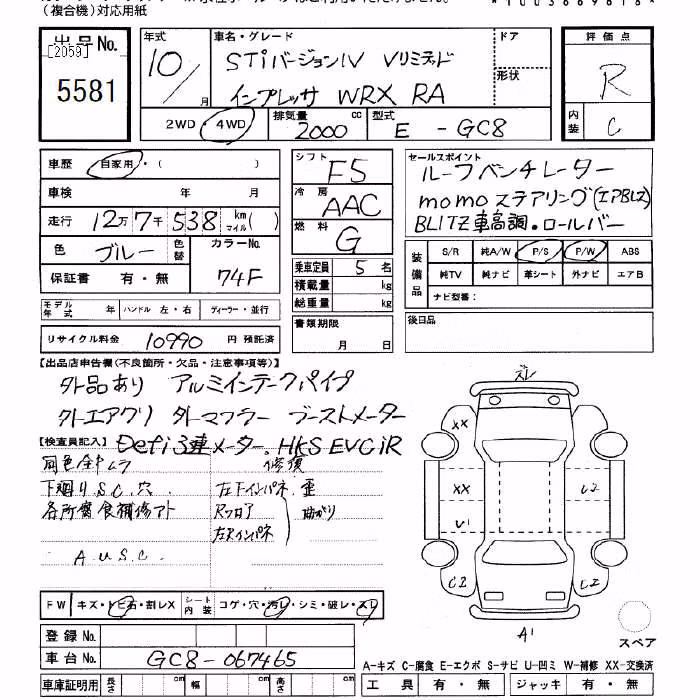 (複合機)対応用紙
*1003669616*
出品No.
[2059]
5581
年式
10/月
車名・グレード
STiバージョンIV Vリミテッド
インプレッサ WRX RA
ドア
形状
2WD・4WD
排気量 2000 cc
型式 E - GC8
評価点
R
内装
C
車歴 自家用・( )
車検 年 月
走行 12万7千538 km マイル( )
色 ブルー 色替 カラーNo. 74F
保証書 有・無
モデル年式 年 ハンドル 左・右 ディーラー・並行
リサイクル料金 10990 円 預託済
シフト F5
冷房 AAC
燃料 G
乗車定員 5 名
積載量 kg
総重量 kg
書類期限
月 日
セールスポイント
ルーフベンチレーター
momoステアリング(エアBレス)
BLITZ車高調・ロールバー
装備品
S/R 純A/W P/S P/W ABS
純TV 純ナビ 革シート 外ナビ エアB
ナビ型番:
後日品
【出品店申告欄(不良箇所・欠品・注意事項等)】
外品あり アルミインテークパイプ
外エアクリ 外マフラー ブーストメーター
【検査員記入】 Defi3連メーター。HKS EVCiR
同色全ムラ
修復
下廻りS.C.穴.
左下インパネ 歪
各所腐食補修アト
Rフロア 曲がり
左Rインパネ
A U S C.
FW キズ・トビ石・割レX シート内装 コゲ・穴・汚レ・シミ・破レ・スレ
登録No.
車台No. GC8-067465
車庫証明用 長さ cm 幅 cm 高さ cm
ズレ
XX
XX
C2
U1
C2
C2
A1
スペア
A-キズ C-腐食 E-エクボ S-サビ U-凹ミ W-補修 XX-交換済
工具 有・無 ジャッキ 有・無